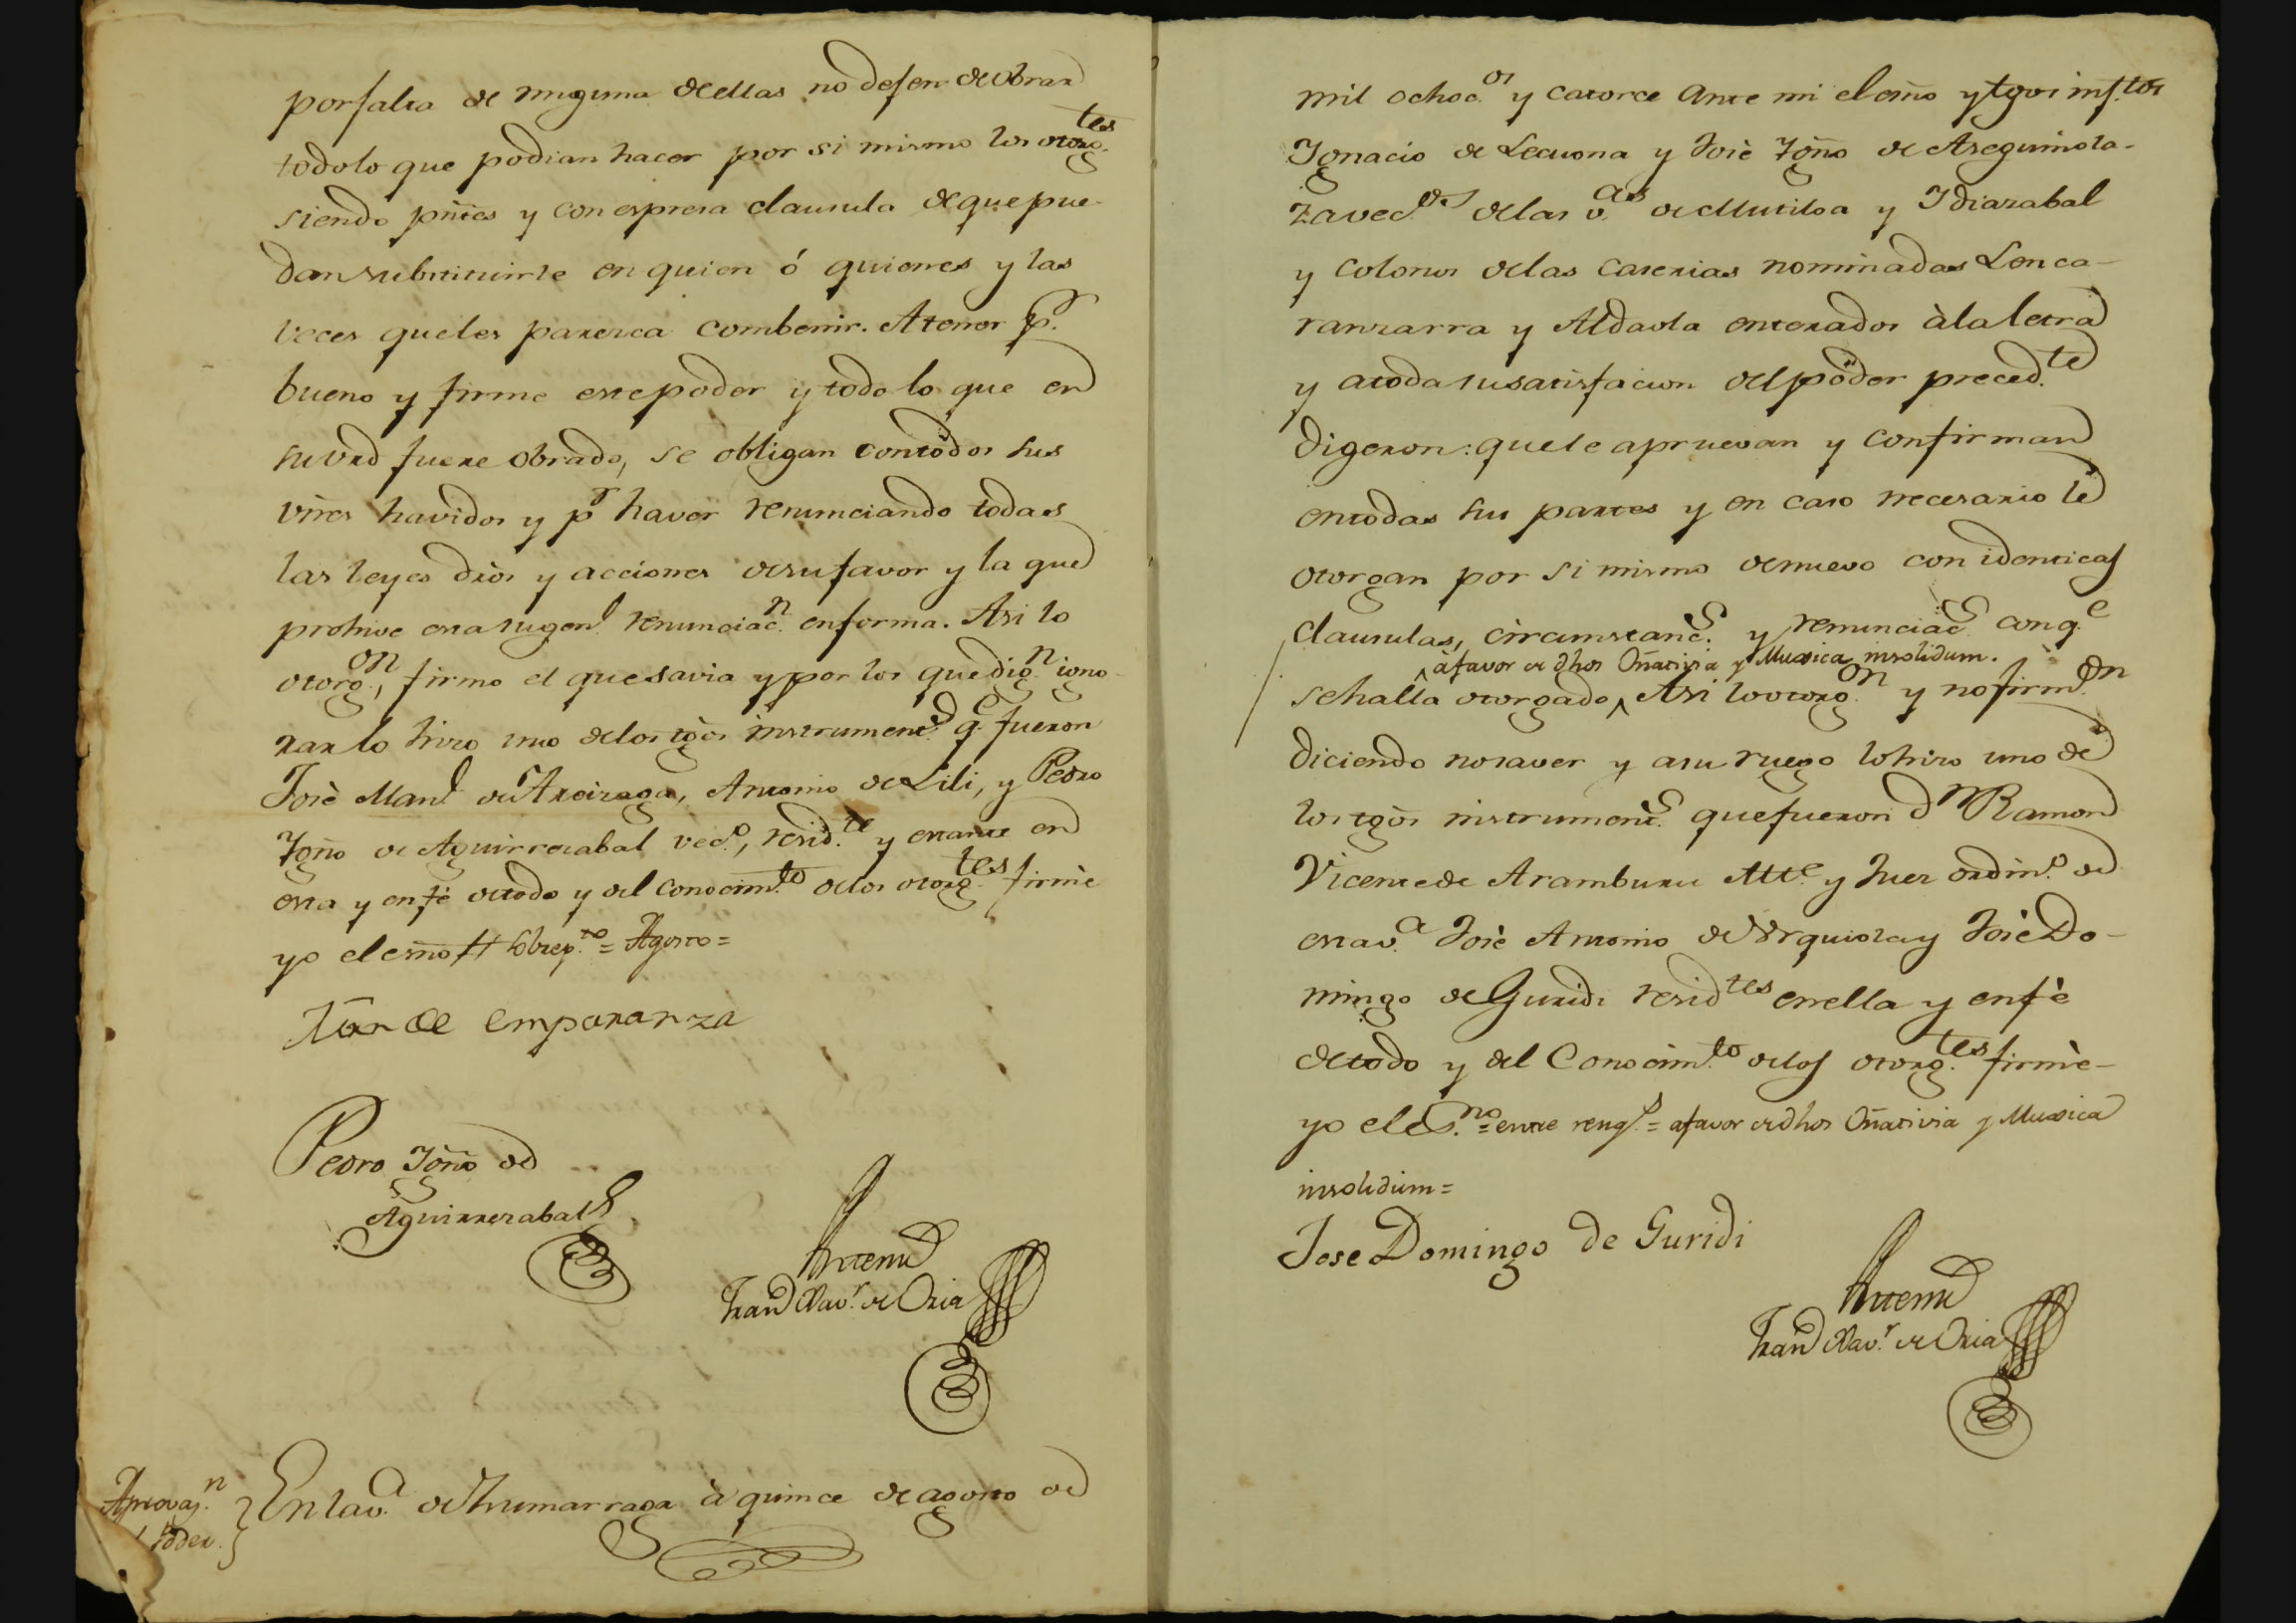 por falta de ninguna de ellas no dejen de obrar
todo lo que podian hacer por si mismo los otorg.tes
siendo pntes y con espresa clausula de que pue-
dan substituirle en quien ó quienes y las
veces que les paresca combenir. A tener p.r
bueno y firme este poder y todo lo que en
su vrd fuere obrado, se obligan con todos sus
vnes havidos y p.r haver renunciando todas
las leyes dros y acciones de su favor y la que
prohive esta su gen.l renunciac.n en forma. Asi lo
otorg.on, firmo el que savia y por los que dig.n igno-
rar lo hizo uno de los tgos instrument.s q.e fueron
Josè Man.l de Areizaga, Antonio de Lili, y Pedro
Ygño de Aguirrezabal vec.o, resid.te y estante en
esta y en fé de todo y del conocim.to de los otorg.tes firmè
yo el esño # Sobrep.to = Agosto =
de Emparanza
Pedro Ygño de
Aguirrezabal
Antemi
Fran.co Xav.r de Oria
Aprovaz.n
Poder.
En la v.a de Zumarraga à quince de agosto de
mil ochoc.os y catorce ante mi el esño y tgos insf.tos
Ygnacio de Lecuona y Josè Ygño de Aseguinola-
za vec.os de las v.as de Mutiloa y Ydiazabal
y colonos de las caserias nominadas Lenca-
ranzarra y Aldaola enterados à la letra
y a toda su satisfacion del poder preced.te
digeron: que le apruevan y confirman
en todas sus partes y en caso necesario le
otorgan por si mismo de nuevo con identicas
clausulas, circunstanc.s y renunciac.s con q.e
à favor de dhos Oñativia y Muxica insolidum.
se halla otorgado, Asi lo otorg.on y no firm.on
diciendo no saver y a su ruego lo hizo uno de
los tgos instrument.s que fueron d.n Ramon
Vicente de Aramburu Alc.e y Juez ordin.o de
esta v.a Josè Antonio de Urquiola y Josè Do-
mingo de Guridi resid.tes en ella y en fè
de todo y del Conocim.to de los otorg.tes firmè-
yo el es.no = entre reng.s = a favor de dhos Oñativia y Muxica
insolidum =
Jose Domingo de Guridi
Antemi
Fran.co Xav.r de Oria